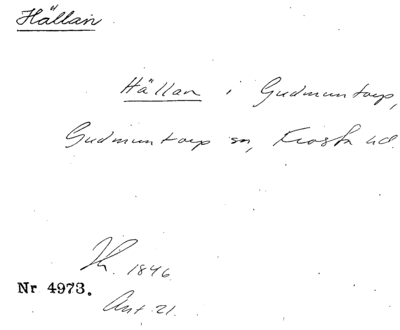 Hällan
Hällan i Gudmuntorp,
Gudmuntorp sn, Frosta hd.
1846
Nr 4973.
Ant. 21.